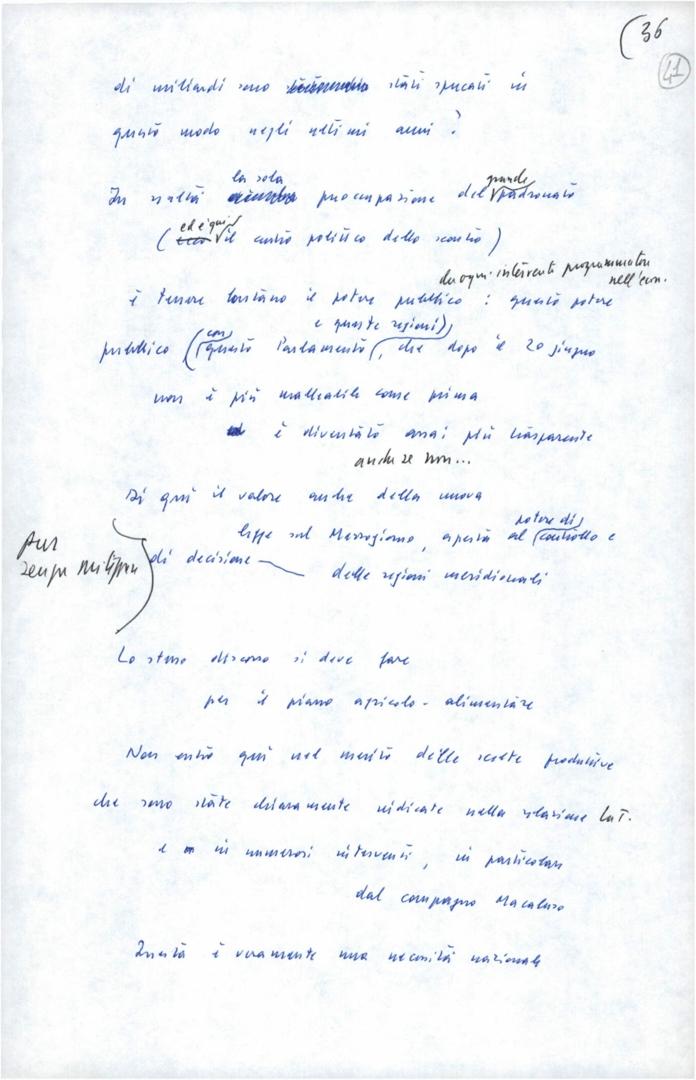 (36
41
di miliardi sono stati sprecati in
questo modo negli ultimi anni?
la sola grande
In realtà preoccupazione del padronato
ed è qui
(il centro politico dello scontro)
da ogni intervento programmatore
nell'econ.
è tenere lontano il potere pubblico: questo potere
con e queste regioni)
pubblico (questo Parlamento, che dopo il 20 giugno
non è più malleabile come prima
è diventato assai più trasparente
anche se non...
Di qui il valore anche della nuova
potere di
legge sul Mezzogiorno, aperta al controllo e
pur
senza
di decisione
delle regioni meridionali
Lo stesso discorso si deve fare
per il piano agricolo-alimentare
Non entro qui nel merito delle scelte produttive
che sono state chiaramente indicate nella relazione LaT.
e in numerosi interventi, in particolare
dal compagno Macaluso
Questa è veramente una necessità nazionale